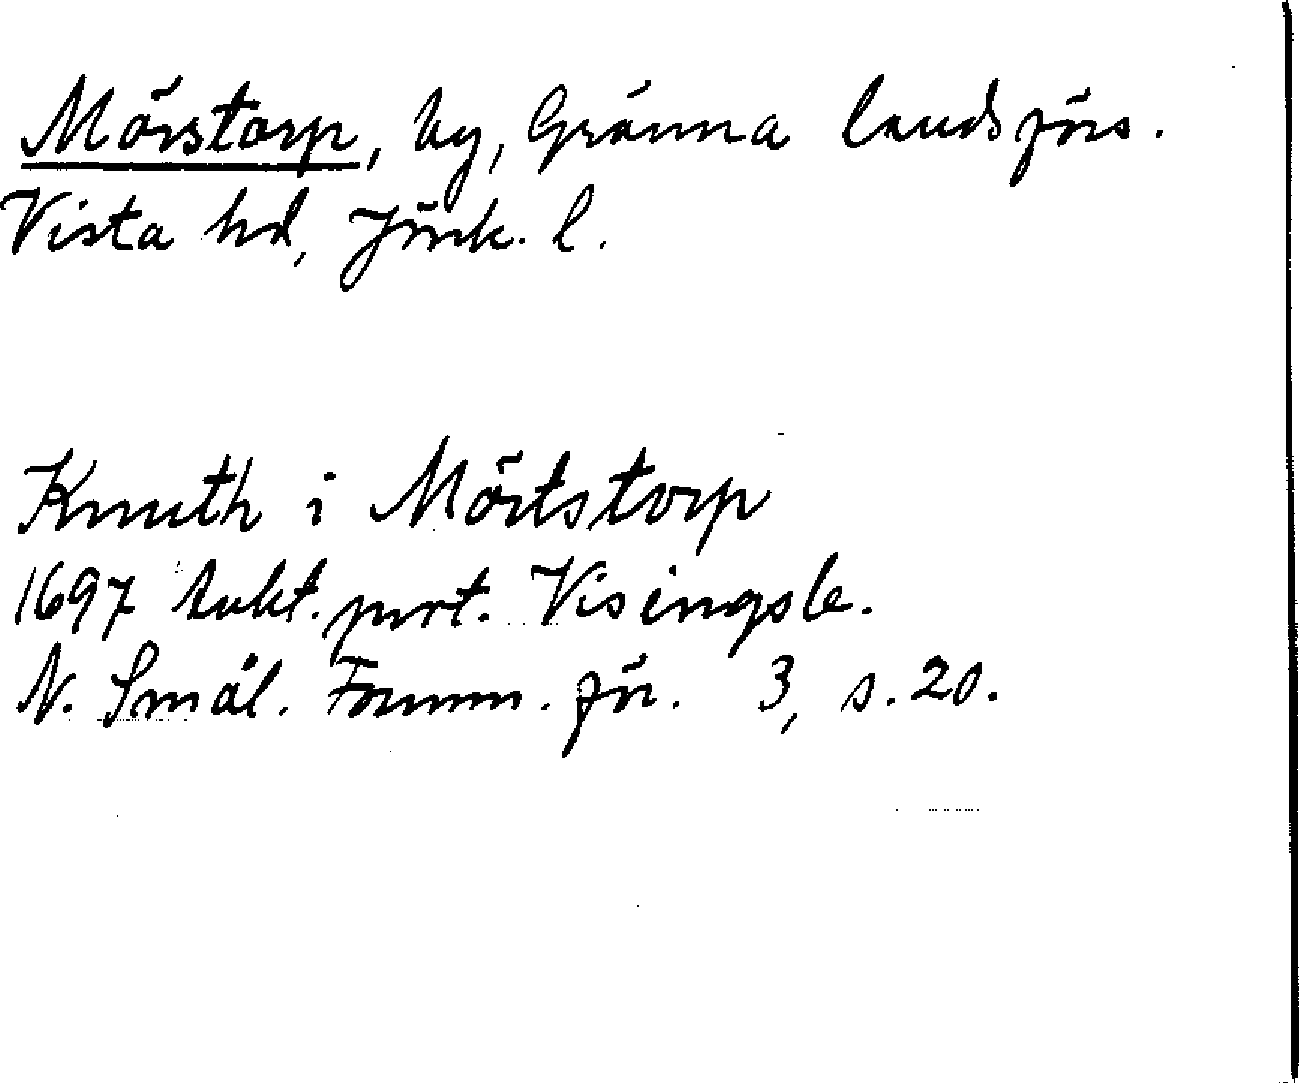 Mörstorp, by, Gränna landsförs.
Vista hd, Jönk. l.
Knuth i Mörtstorp
1697 aukt. prot. Visingsb.
N. Smål. Fornm. för. 3, s. 20.